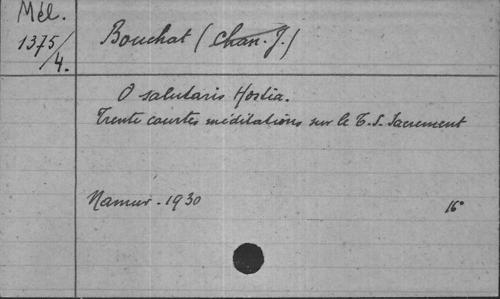 Mél.
1375/4.
Bouchat (Chan. J.)
O salutaris Hostia.
Trente courtes méditations sur le T. S. Sacrement
Namur - 1930
16°